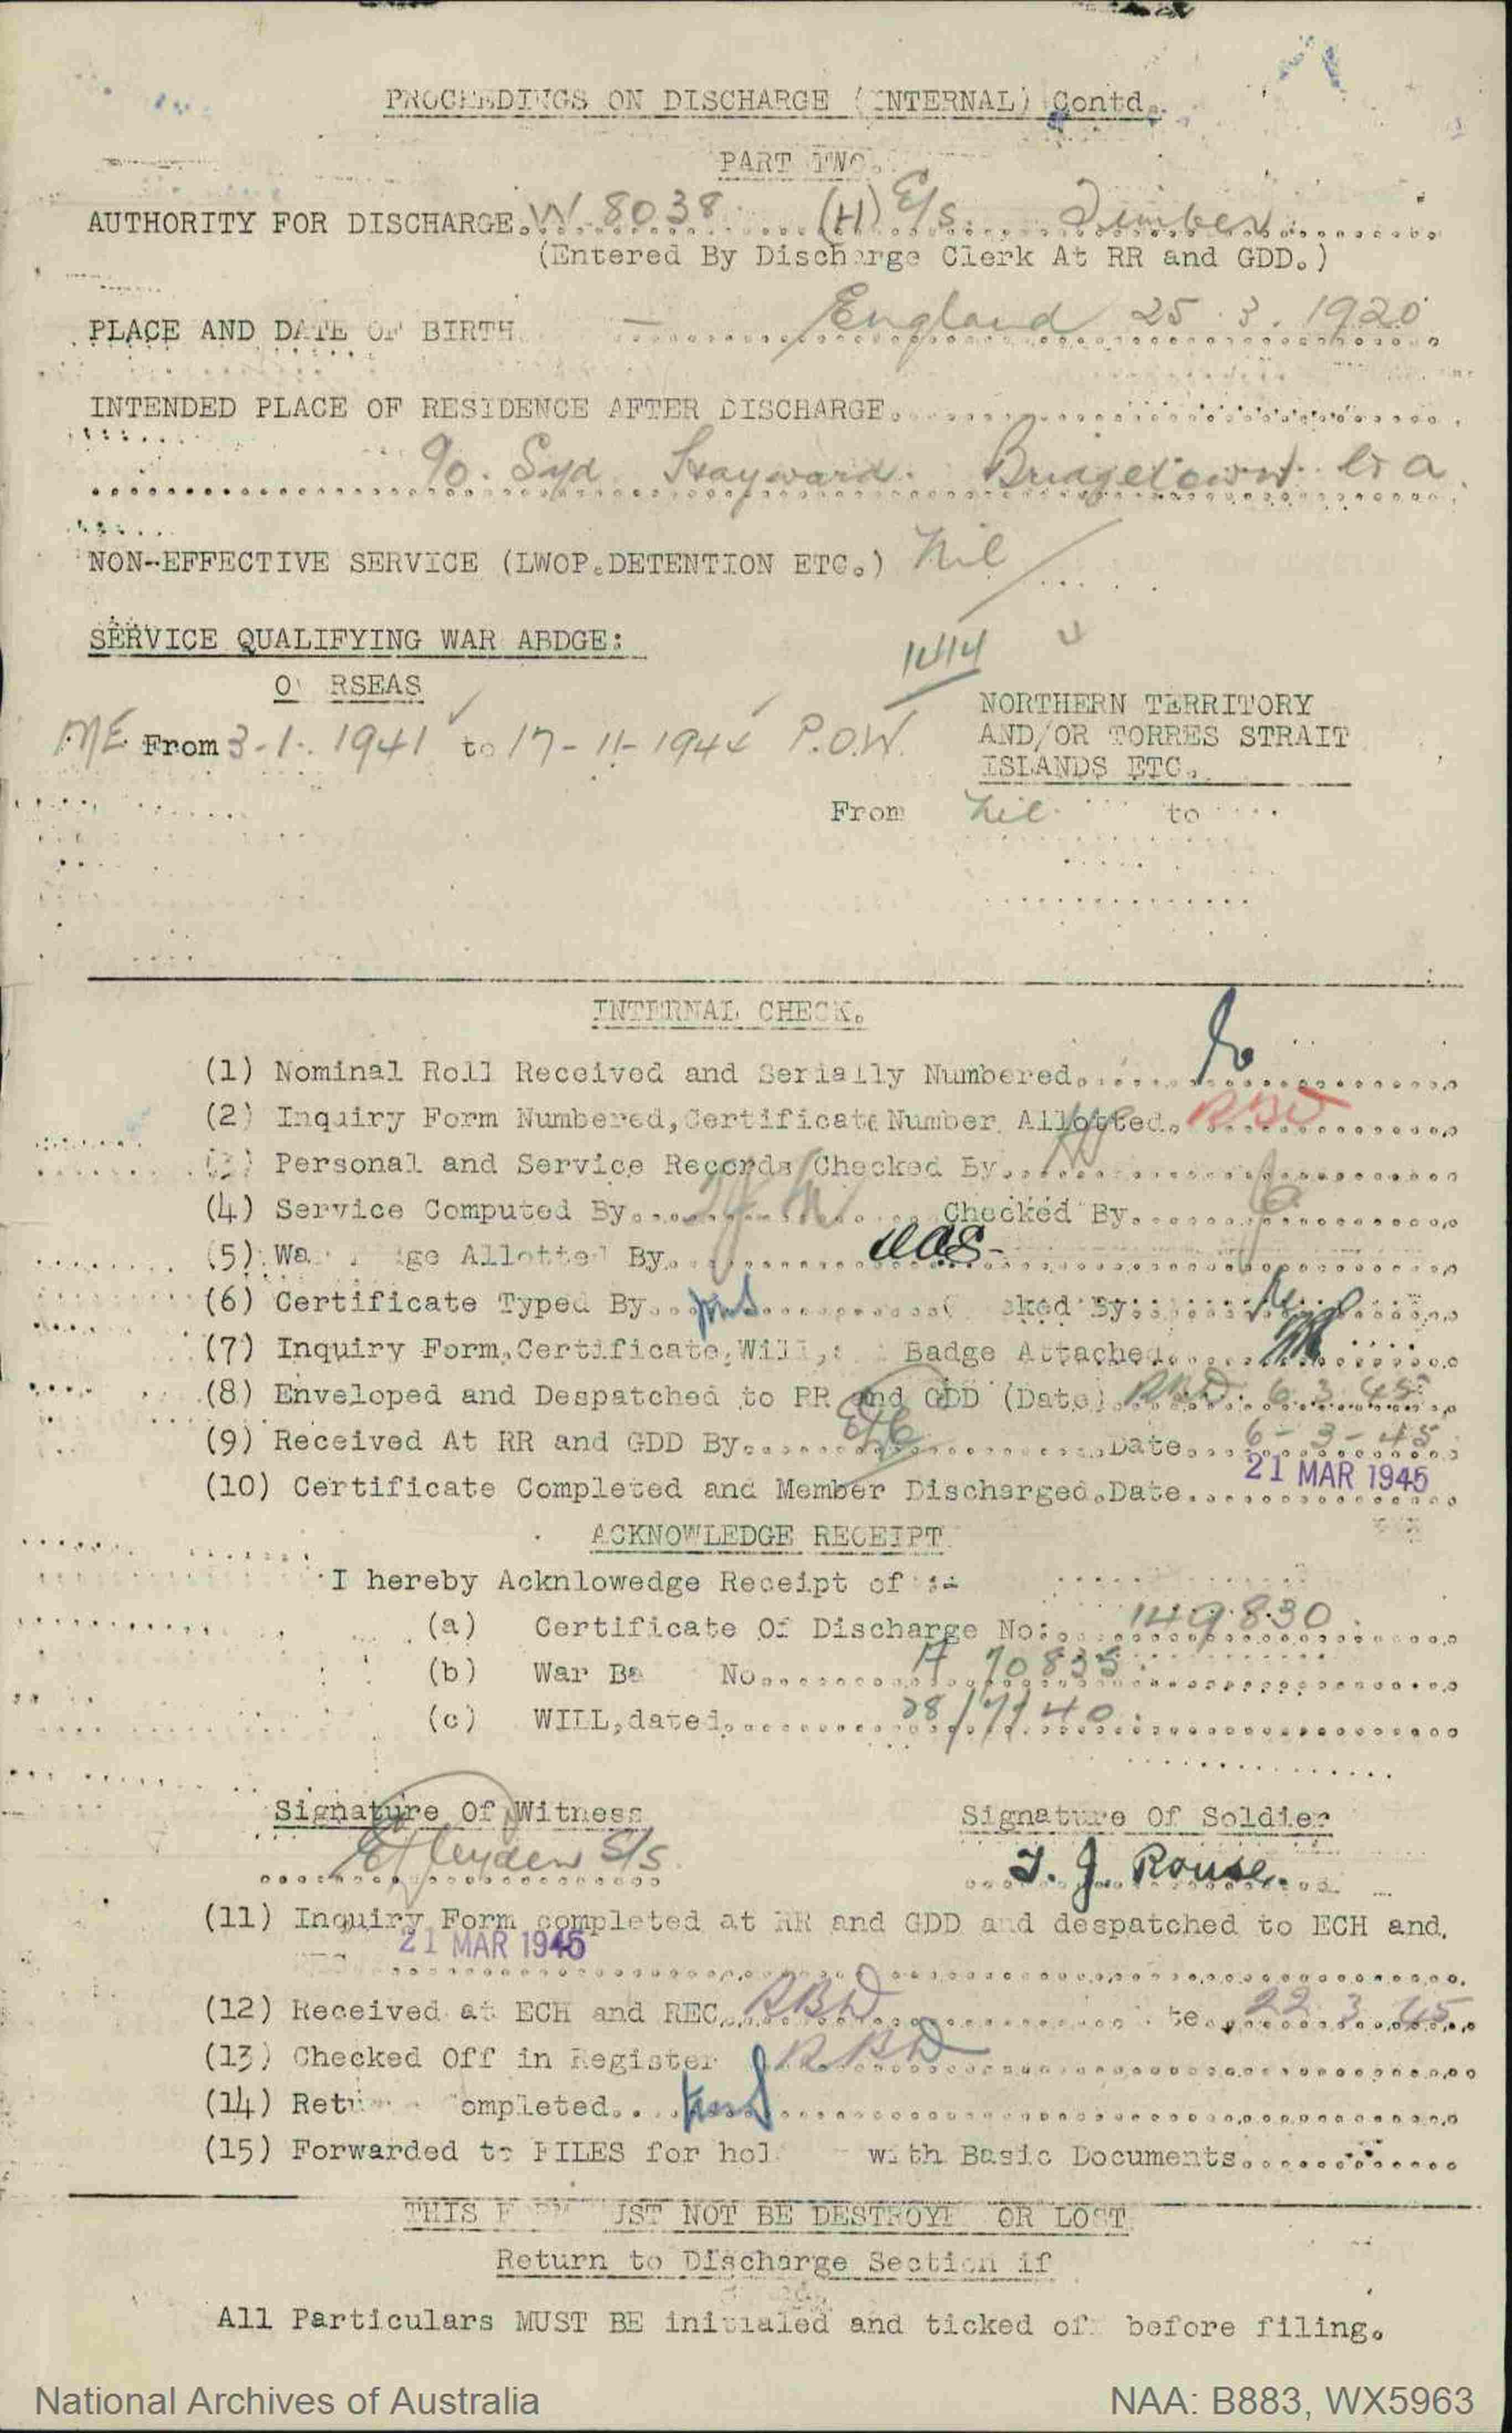 PROCEEDINGS ON DISCHARGE (INTERNAL) Contd.
PART TWO.
AUTHORITY FOR DISCHARGE. W 8038 (H) E/s. Timber
(Entered By Discharge Clerk At RR and GDD.)
PLACE AND DATE OF BIRTH — England 25.3.1920
INTENDED PLACE OF RESIDENCE AFTER DISCHARGE.
c/o. Syd Hayward. Bridgetown W a.
NON-EFFECTIVE SERVICE (LWOP.DETENTION ETC.) Nil
SERVICE QUALIFYING WAR ABDGE:
1414
O RSEAS
NORTHERN TERRITORY
AND/OR TORRES STRAIT
ISLANDS ETC.
ME From 3-1-1941 to 17-11-1944 P.O.W.
From Nil to
INTERNAL CHECK.
(1) Nominal Roll Received and Serially Numbered.
(2) Inquiry Form Numbered,Certificate Number Allotted. RBD
(3) Personal and Service Records Checked By.
(4) Service Computed By. Checked By.
(5) Wa ge Allotted By.
(6) Certificate Typed By. ked By:
(7) Inquiry Form,Certificate,Will, Badge Attached.
(8) Enveloped and Despatched to RR and GDD (Date) RBD. 6.3.45
(9) Received At RR and GDD By. Date. 6-3-45
(10) Certificate Completed and Member Discharged.Date. 21 MAR 1945
ACKNOWLEDGE RECEIPT
I hereby Acknlowedge Receipt of :-
(a) Certificate Of Discharge No: 149830
(b) War Ba No. A 70835
(c) WILL,dated. 28/7/40
Signature Of Witness
Signature Of Soldier
S/S
T. J. Rouse.
(11) Inquiry Form completed at RR and GDD and despatched to ECH and.
21 MAR 1945
(12) Received at ECH and REC. RBD te. 22.3.45
(13) Checked Off in Register RBD
(14) Ret ompleted.
(15) Forwarded to FILES for hol with Basic Documents.
THIS F UST NOT BE DESTROYE OR LOST
Return to Discharge Section if
All Particulars MUST BE initialed and ticked of before filing.
National Archives of Australia
NAA: B883, WX5963